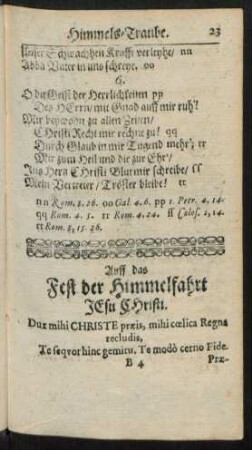 Himmels-Traube. 23
unser Schwachheit Krafft verleyhe/ nn
Abba Vater in uns schreye. oo
6.
O du Geist der Herrlichkeiten pp
Des HErrn/ mit Gnad auff mir ruh!
Mir beywohn zu allen Zeiten/
Christi Recht mir rechne zu! qq
Durch Glaub in mir Tugend mehr/ rr
Mir zum Heil und dir zur Ehr/
Ins Hertz Christi Blut mir schreibe/ ss
Mein Vertreter/ Tröster bleibe! tt
nn Rom. 8. 26. oo Gal. 4. 6. pp 1. Petr. 4, 14.
qq Rom. 4. 5. rr Rom. 4. 24. ss Colos. 2, 14.
tt Rom. 8, 15. 26.
Auff das
Fest der Himmelfahrt
JEsu CHristi.
Dux mihi CHRISTE præis, mihi cœlica Regna
recludis,
Te sequor hinc gemitu, Te modò cerno Fide.
B 4 Præ-